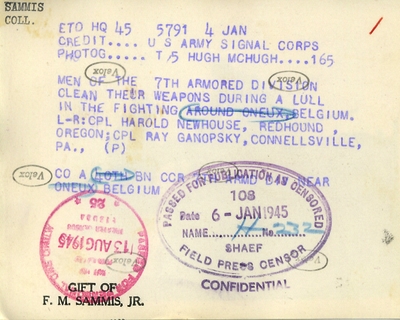 SAMMIS
COLL.
ETO HQ 45 5791 4 JAN
CREDIT.... U S ARMY SIGNAL CORPS
PHOTOG..... T/5 HUGH MCHUGH....165
Velox
Velox
MEN OF THE 7TH ARMORED DIVISION
CLEAN THEIR WEAPONS DURING A LULL
IN THE FIGHTING AROUND ONEUX, BELGIUM.
L-R:CPL HAROLD NEWHOUSE, REDHOUND,
OREGON;CPL RAY GANOPSKY, CONNELLSVILLE,
PA., (P)
Velox
Velox
CO A 40TH BN CCR 7TH ARMD DIV NEAR
ONEUX BELGIUM
PASSED FOR PUBLICATION AS CENSORED
108
Date 6-JAN 1945
NAME No. 232
SHAEF
FIELD PRESS CENSOR
CONFIDENTIAL
13 AUG 1945
Velox
GIFT OF
F. M. SAMMIS, JR.